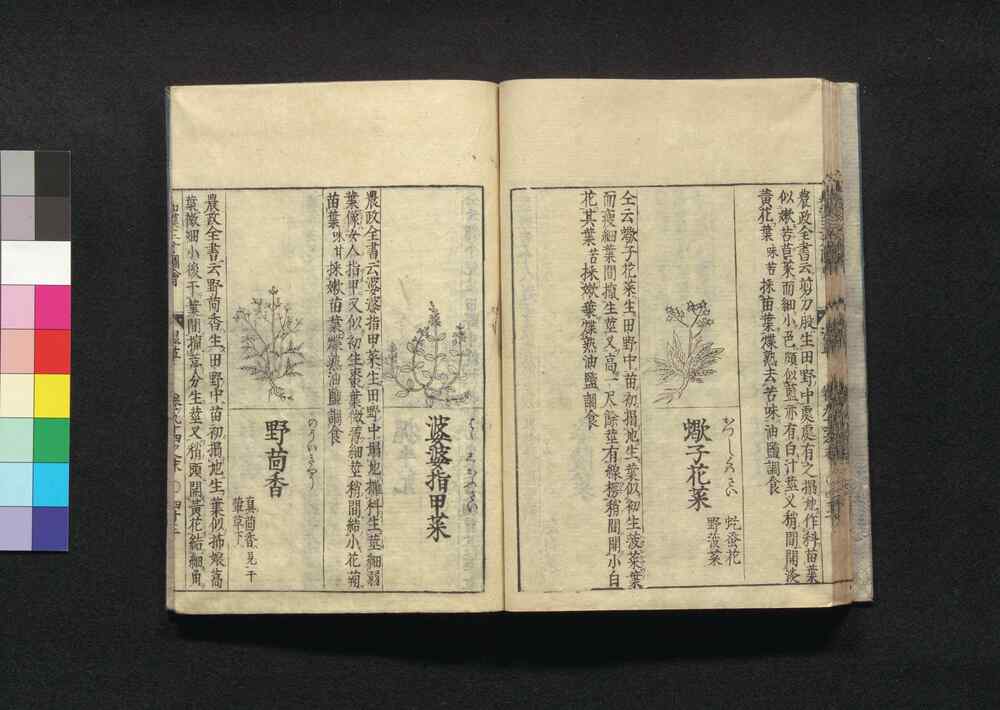 農政全書云剪刀股生田野中處處有之搨地作科苗葉
似嫩苦苣葉而細小色頗似藍亦有白汁莖叉稍間開淡
黃花葉味苦採苗葉煠熟去苦味油鹽調食
蠍子花菜
虼蚤花
野菠菜
仝云蠍子花菜生田野中苗初搨地生葉似初生菠菜葉
而瘦細葉間攛生莖叉高一尺餘莖有線楞稍間開小白
花其葉苦採嫩葉煠熟油鹽調食
婆婆指甲菜
農政全書云婆婆指甲菜生田野中搨地攤科生莖細弱
葉像女人指甲又似初生棗葉微薄細莖稍間結小花蒴
苗葉味甘採嫩苗葉煠熟油鹽調食
野茴香
のういきやう
真茴香見于
葷草下
農政全書云野茴香生田野中苗初搨地生葉似抪娘蒿
葉微細小後于葉間攛葶分生莖叉稍頭開黃花結細角